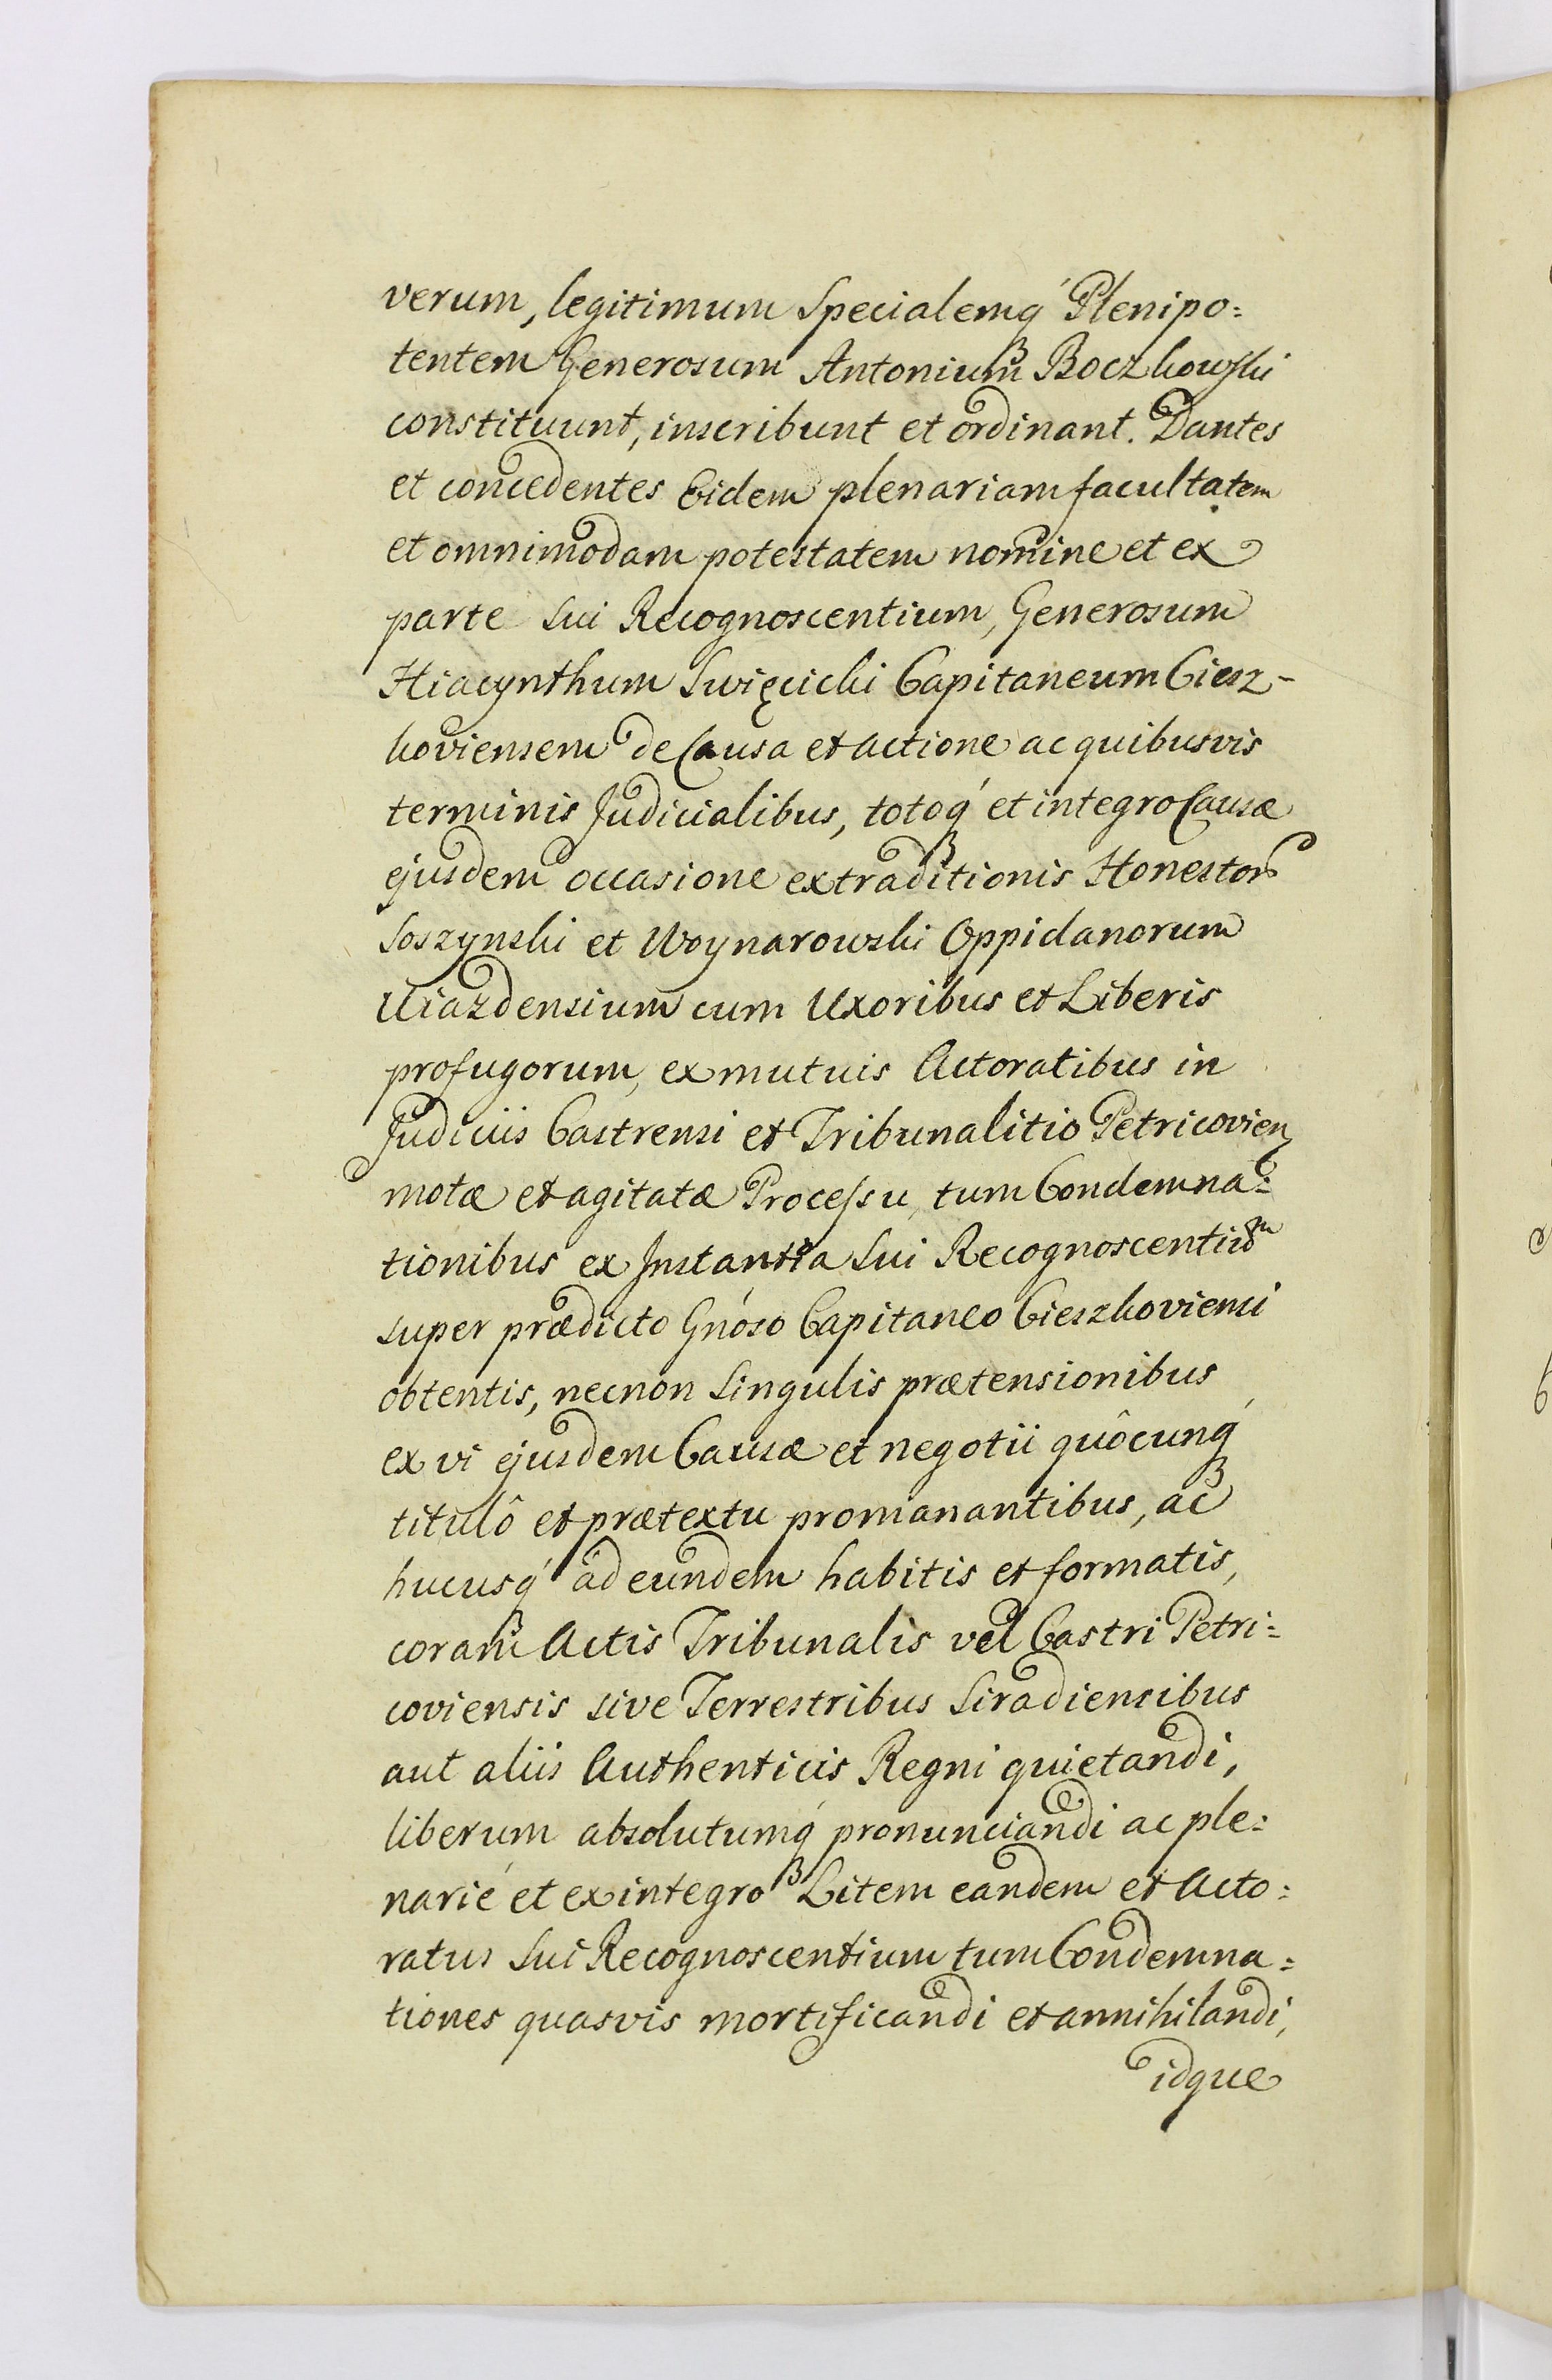 verum, legitimum Specialemq́ Plenipo=
tentem Generosum Antonium Boczkowski
constituunt, inscribunt et ordinant. Dantes
et concedentes Eidem plenariam facultatem
et omnimodam potestatem nomine et ex
parte sui Recognoscentium, Generosum
Hiacynthum Swięcicki Capitaneum Ciesz-
koviensem de Causa et actione ac quibusvis
terminis Judicialibus, totoq́ et integro Causæ
ejusdem occasione extraditionis Honestor
Soszynski et Woynarowski Oppidanorum
Uiazdensium cum Uxoribus et Liberis
profugorum, ex mutuis Actoratibus in
Judiciis Castrensi et Tribunalitio Petricovien
motæ et agitatæ Processu, tum Condemna=
tionibus ex Instantia sui Recognoscentium
super prædicto Gnóso Capitaneo Cieszkoviensi
obtentis, necnon singulis prætensionibus
ex vi ejusdem Causæ et negotii quôcunq́
titulô et prætextu promanantibus, ac
hucusq́ ad eundem habitis et formatis,
coram Actis Tribunalis vel Castri Petri=
coviensis sive Terrestribus Siradiensibus
aut aliis Authenticis Regni quietandi,
liberum absolutumq́ pronunciandi ac ple=
narié et ex integro Litem eandem et Acto=
ratus sui Recognoscentium tum Condemna=
tiones quasvis mortificandi et annihilandi,
idque